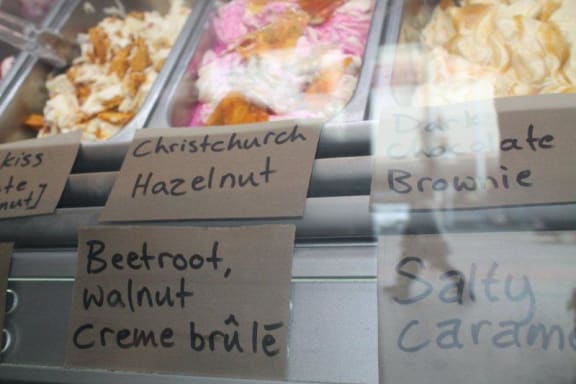 kiss
nut]
Christchurch
Hazelnut
Dark
Chocolate
Brownie
Beetroot,
walnut
Creme brûlē
Salty